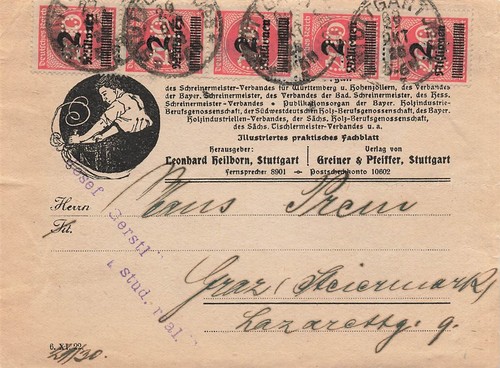 2 2 2 2 2
des Schreinermeister-Verbandes für Württemberg u. Hohenzollern, des Verbandes
der Bayer. Schreinermeister, des Verbandes der Bad. Schreinermeister, des Hess.
Schreinermeister-Verbandes • Publikationsorgan der Bayer. Holzindustrie-
Berufsgenossenschaft, der Südwestdeutschen Holz-Berufsgenossenschaft, des Bayer.
Holzindustriellen-Verbandes, der Sächs. Holz-Berufsgenossenschaft,
des Sächs. Tischlermeister-Verbandes u. a.
Illustriertes praktisches Fachblatt
Herausgeber: Verlag von
Leonhard Heilborn, Stuttgart Greiner & Pfeiffer, Stuttgart
Fernsprecher 8901 Postscheckkonto 10602
Josef Gerstl
stud. real.
Herrn Hans Prem
Fil.
Graz (Steiermark)
Lazarettg. 9.
6. XI. 22.